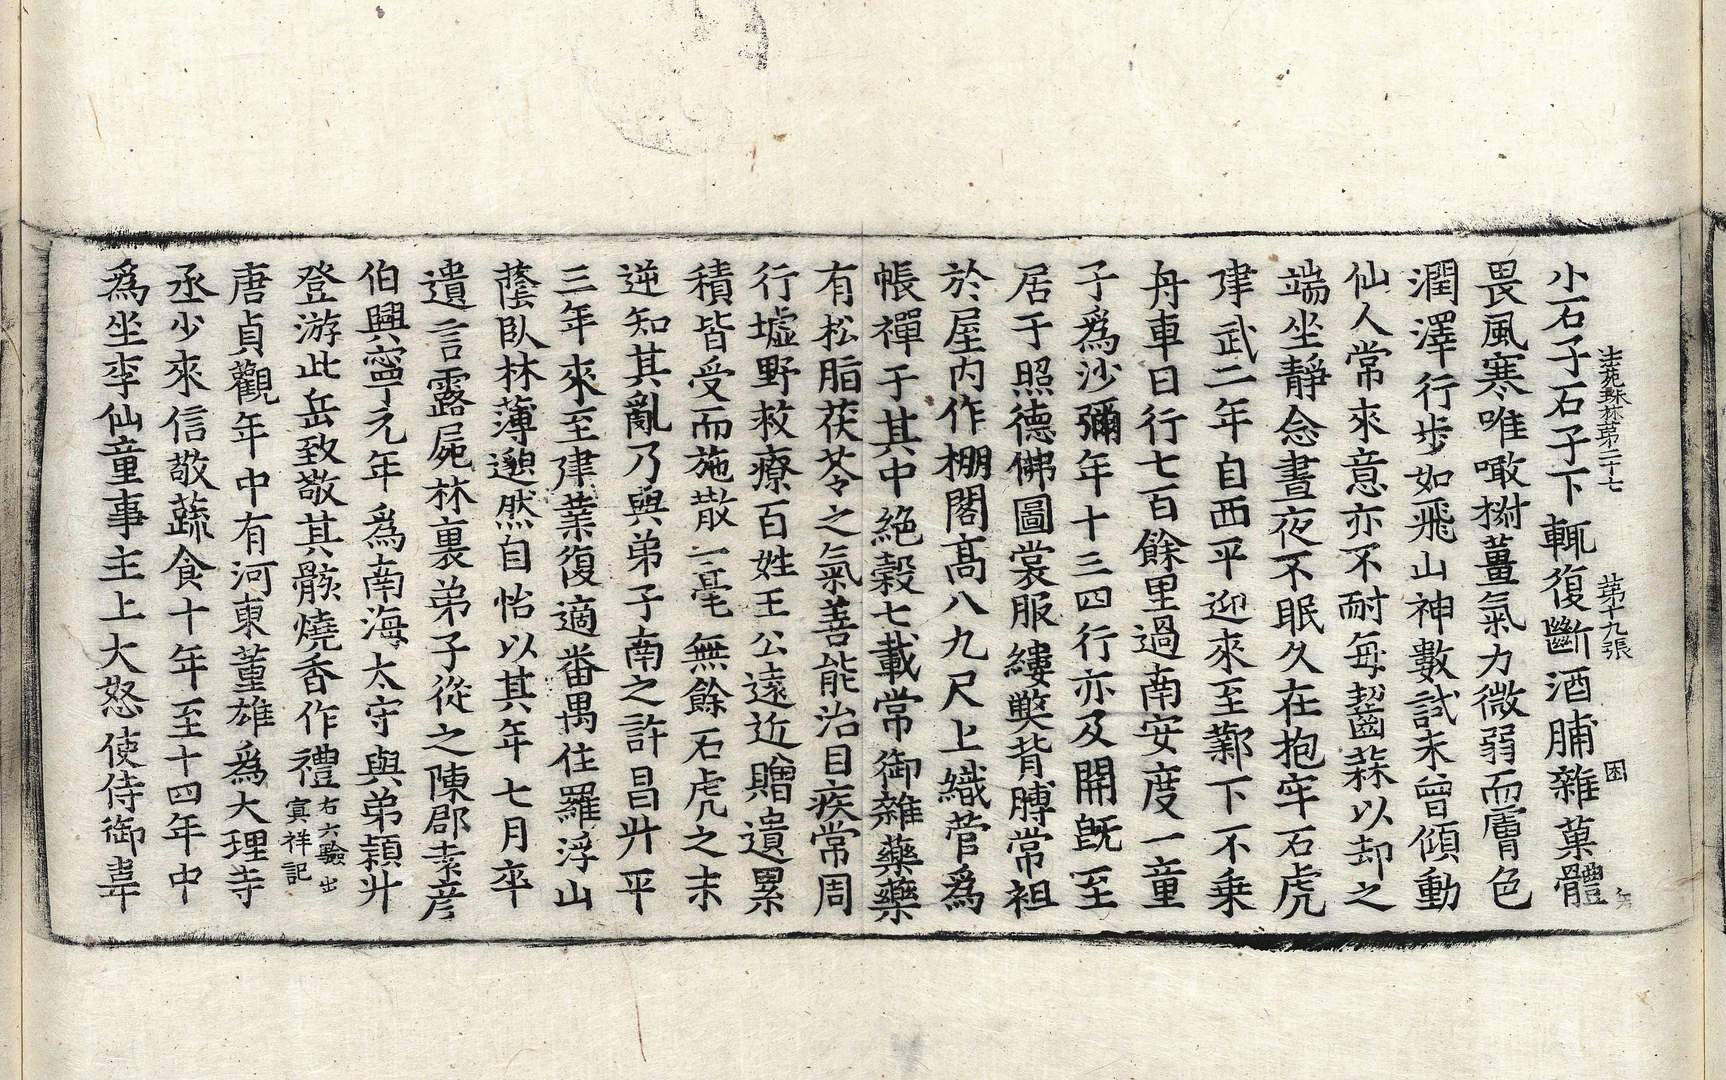 法苑珠林第二十七　第十九張　困
小石子石子下輒復斷酒脯雜菓體
畏風寒唯噉椒薑氣力微弱而膚色
潤澤行步如飛山神數試未曾傾動
仙人常來意亦不耐每齧蒜以却之
端坐靜念晝夜不眠久在抱牢石虎
建武二年自西平迎來至鄴下不乗
舟車日行七百餘里過南安度一童
子爲沙彌年十三四行亦及開旣至
居于照德佛圖裳服縷弊背膊常袒
於屋内作棚閣髙八九尺上織菅爲
帳禪于其中絶穀七載常御雜藥藥
有松脂茯苓之氣善能治目疾常周
行墟野救療百姓王公遠近贈遺累
積皆受而施散一毫無餘石虎之末
逆知其亂乃與弟子南之許昌升平
三年來至建業復適番禺住羅浮山
蔭臥林薄邈然自怡以其年七月卒
遺言露屍林裏弟子從之陳郡袁彦
伯興寧元年爲南海太守與弟穎升
登游此岳致敬其骸燒香作禮右六驗出冥祥記
唐貞觀年中有河東董雄爲大理寺
丞少來信敬蔬食十年至十四年中
爲坐李仙童事主上大怒使侍御韋